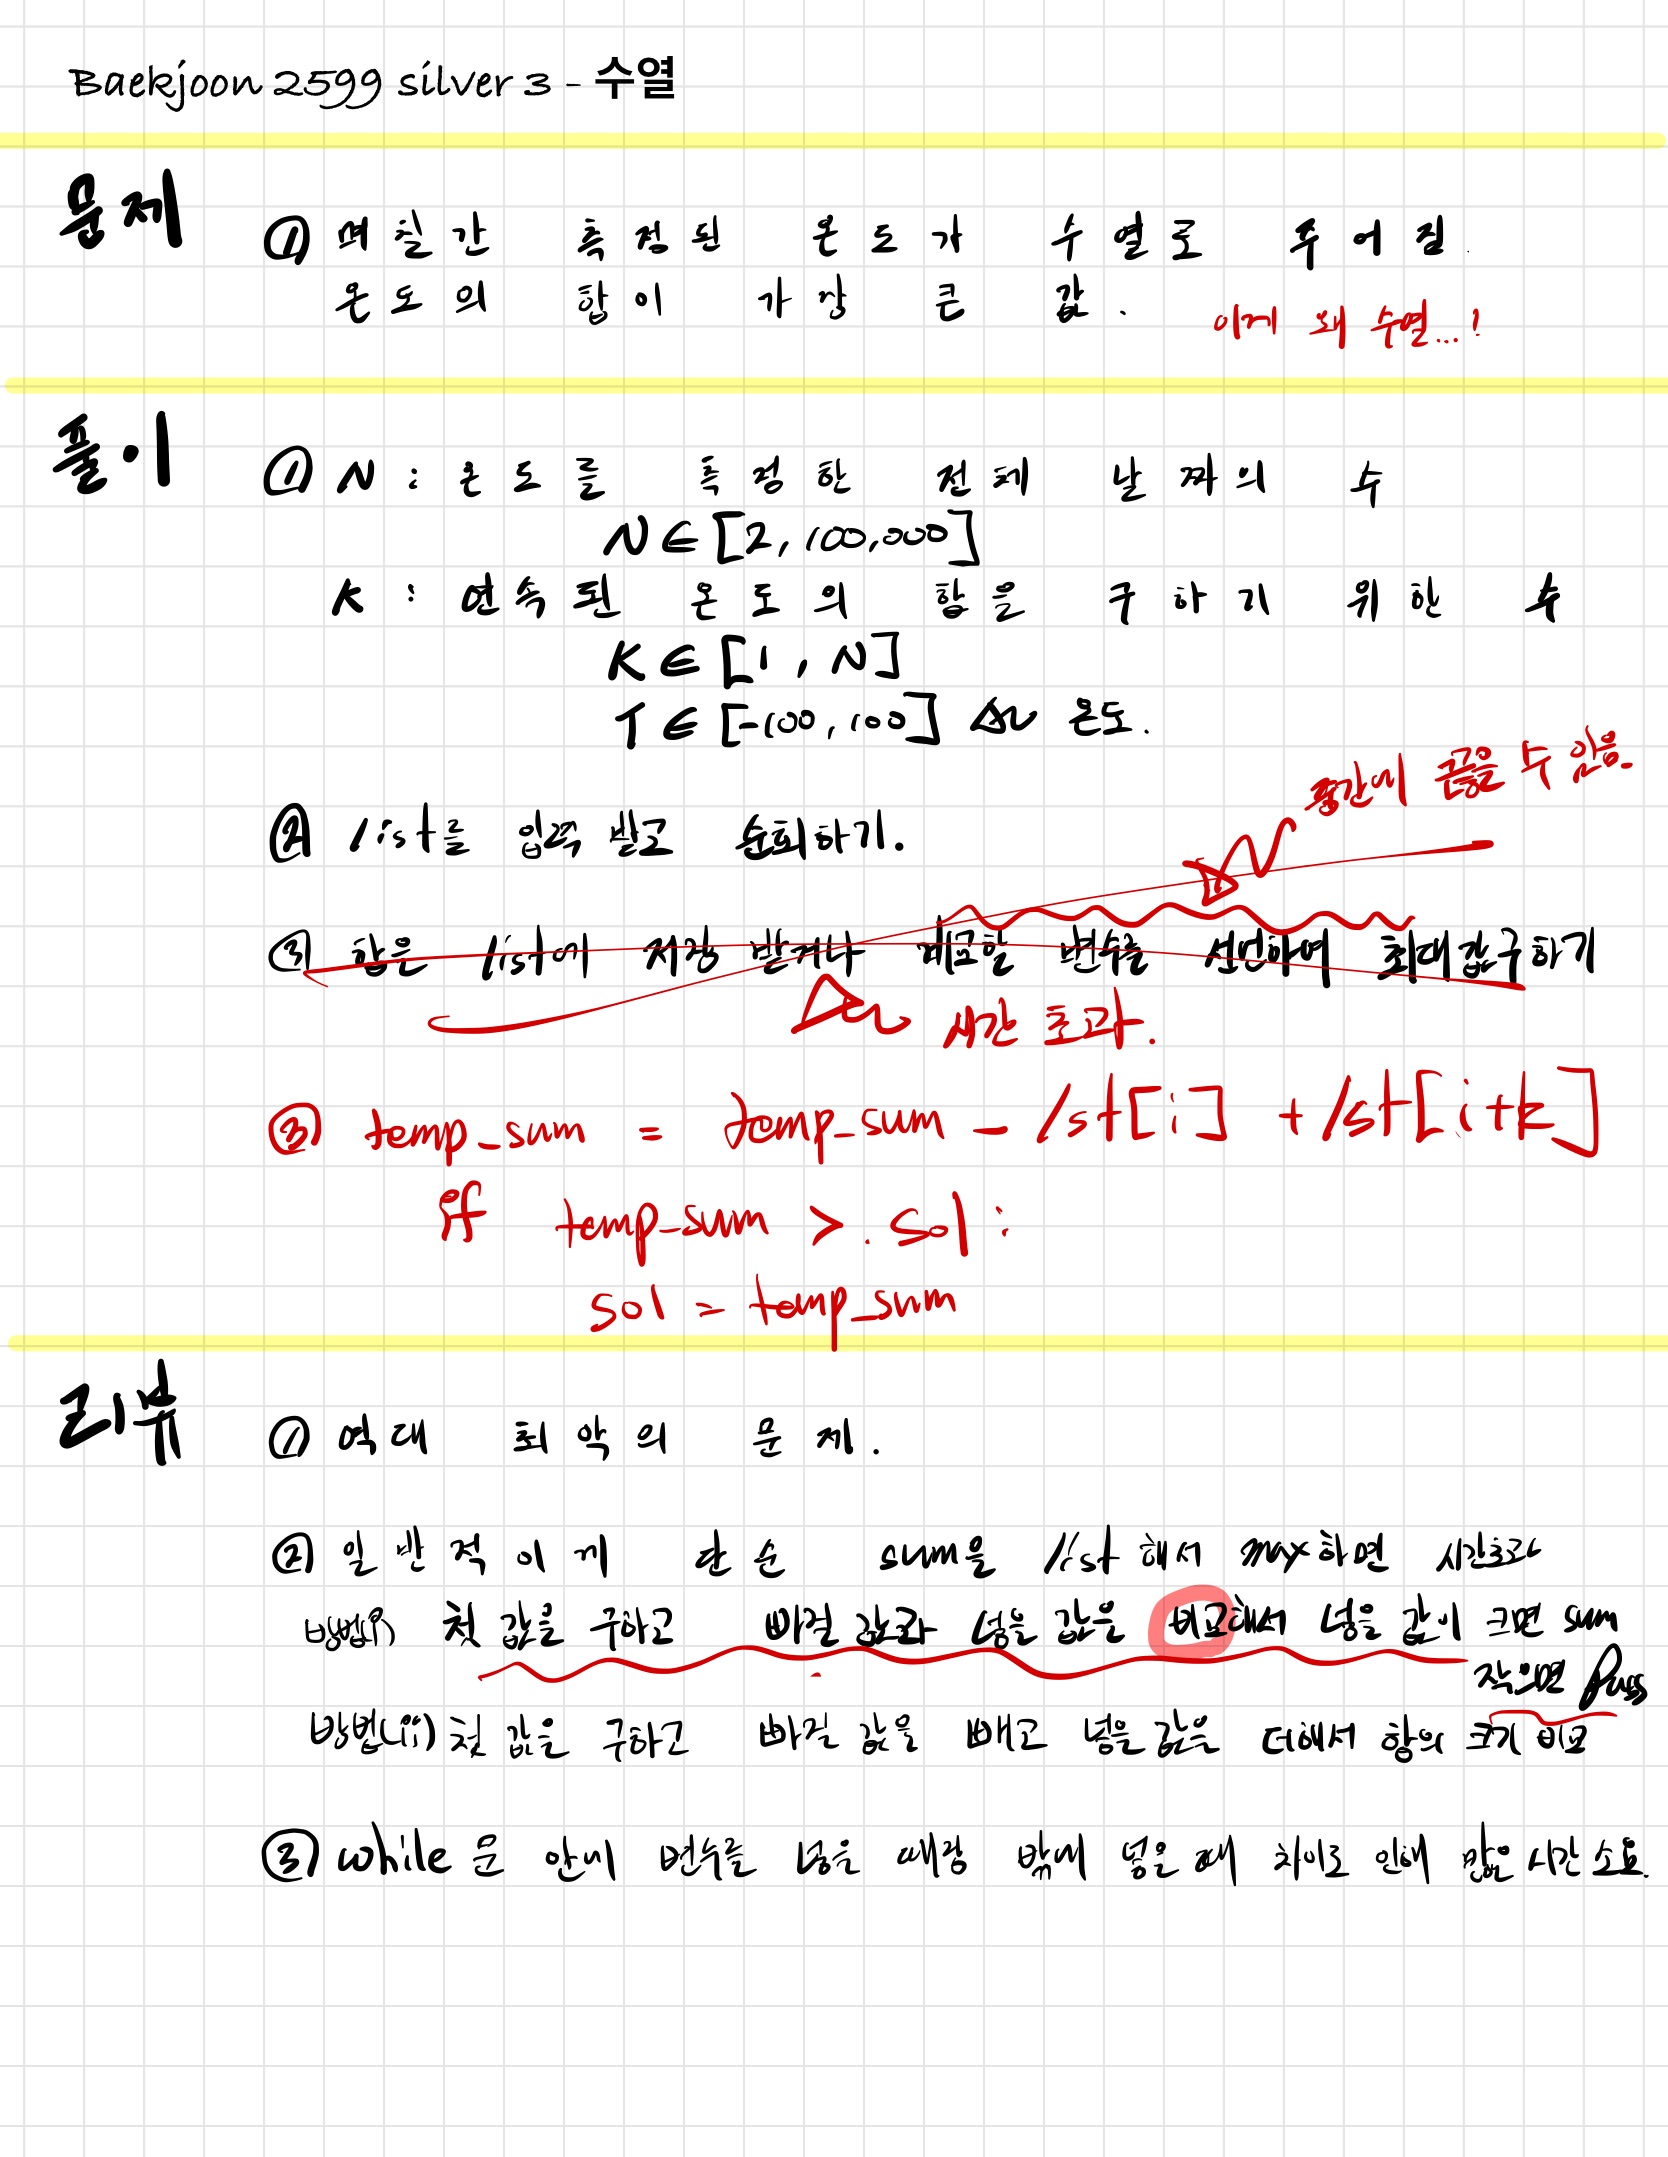 Baekjoon 2599 silver 3 - 수열
문제
① 며칠간 측정된 온도가 수열로 주어짐.
온도의 합이 가장 큰 값.
이게 왜 수열...!
풀이
① N : 온도를 측정한 전체 날짜의 수
N ∈ [2, 100,000]
K : 연속된 온도의 합을 구하기 위한 수
K ∈ [1, N]
T ∈ [-100, 100] 온도.
중간에 끊을 수 있음.
② list를 입력 받고 순회하기.
③ 합은 list에 저장 받거나 비교할 변수를 선언하여 최대값구하기
시간 초과.
③ temp_sum = temp_sum - lst[i] + lst[i+k]
if temp_sum > sol :
sol = temp_sum
리뷰
① 역대 최악의 문제.
② 일반적이게 단순 sum을 list해서 max하면 시간초과
방법(i) 첫 값을 구하고 빠질 값과 넣을 값을 비교해서 넣을 값이 크면 sum
작으면 Pass
방법(ii) 첫 값을 구하고 빠질 값을 빼고 넣을 값을 더해서 항의 크기 비교
③ while문 안에 변수를 넣을 때랑 밖에 넣을 때 차이로 인해 많은 시간 소요.